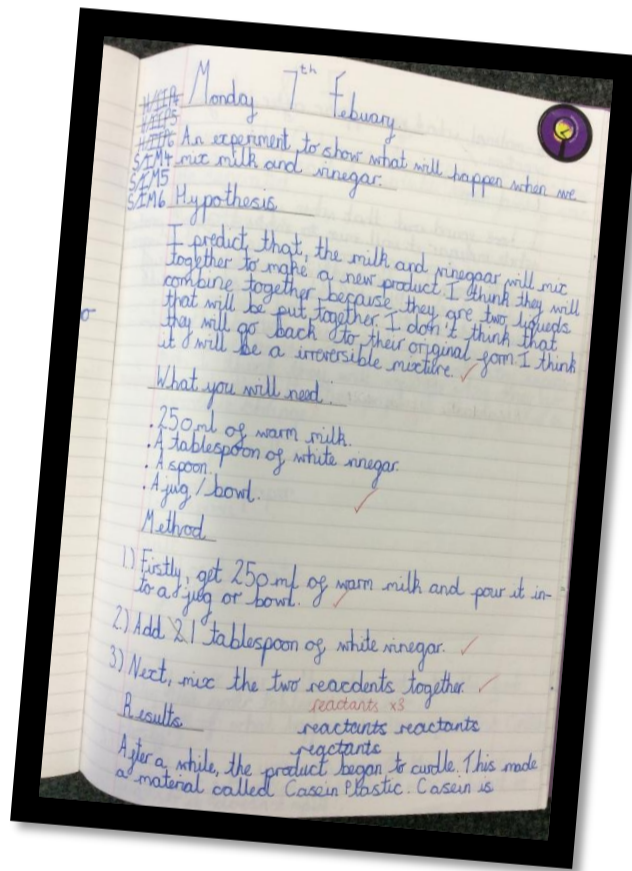 Monday 7th Febuary
An experiment to show what will happen when we
mix milk and vinegar.
S/IM4
S/IM5
S/IM6
Hypothesis
I predict that, the milk and vinegaar will mix
together to make a new product I think they will
combine together because they are two liqueds
that will be put together. I don't think that
they will go back to their original form I think
it will be a irreversible mixture.
What you will need.
. 250ml of warm milk.
. A tablespoon of white vinegar.
. A spoon.
. A jug / bowl.
Method
1.) Firstly, get 250ml of warm milk and pour it in-
to a jug or bowl.
2.) Add 1 tablespoon of white vinegar.
3) Next, mix the two reacdents together
reactants x3
Results
reactants reactants
reactants
After a while, the product began to curdle. This made
a material called Casein Plastic. Casein is